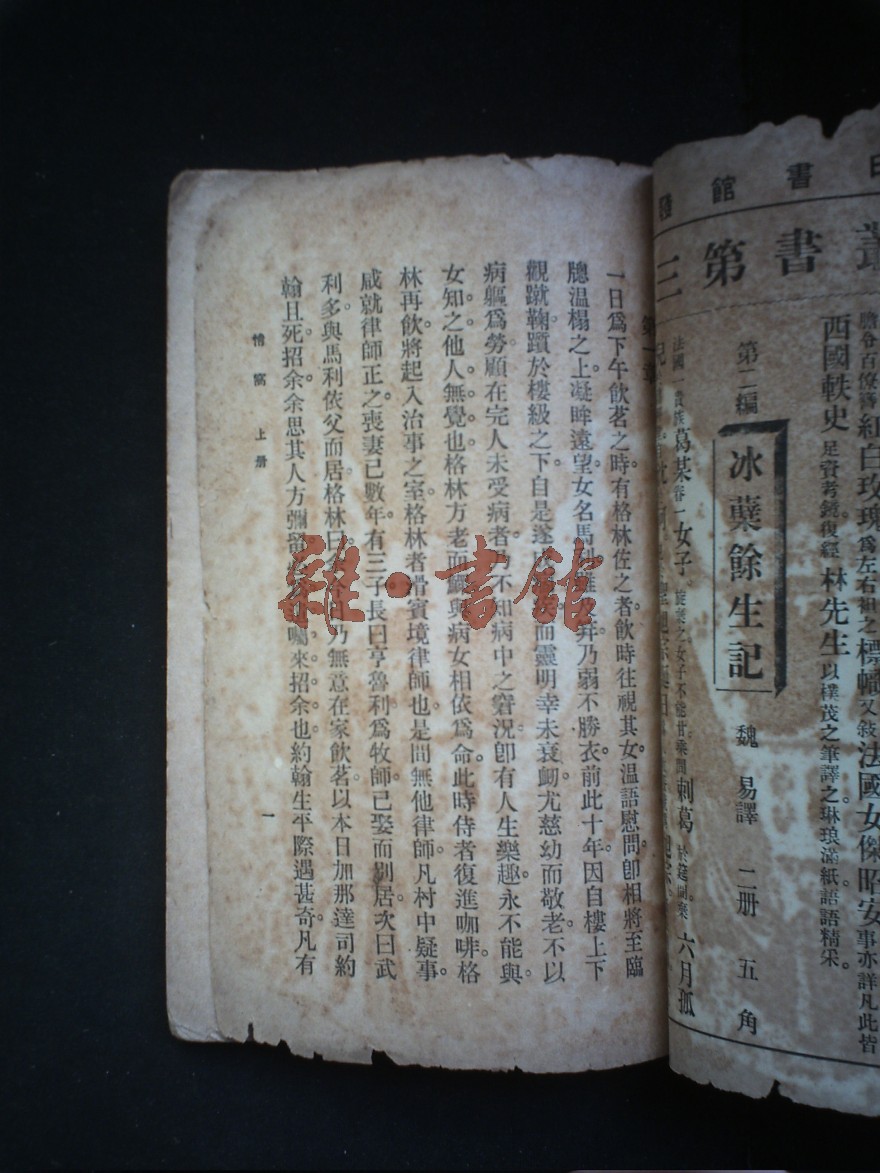 印書館發
叢書第三
膽脊百僚
紅白玫瑰爲左右袒之標幟又敍法國女傑昭安事亦詳凡此皆
西國軼史足資考鏡復經林先生以樸茂之筆譯之琳琅滿紙語語精采。
第二編
冰蘗餘生記
魏易譯
二册
五角
法國一貴族葛某眷一女子
之女子不能甘
刺葛
六月孤
兒
第一章
一日爲下午飲茗之時有格林佐之者飲時往視其女溫語慰問卽相將至臨
牕溫榻之上凝眸遠望女名馬利
乃弱不勝衣前此十年因自樓上下
觀蹴鞠躓於樓級之下自是遂
而靈明幸未衰衂尤慈幼而敬老不以
病軀爲勞顧在完人未受病者乃不知病中之窘況卽有人生樂趣永不能與
女知之他人無覺也格林方老而鰥與病女相依爲命此時侍者復進咖啡格
林再飲將起入治事之室格林者骨賓境律師也是間無他律師凡村中疑事
咸就律師正之喪妻已數年有三子長曰亨魯利爲牧師已娶而別居次曰武
利多與馬利依父而居格林曰
乃無意在家飲茗以本日加那達司約
翰且死招余余思其人方彌留
囑來招余也約翰生平際遇甚奇凡有
情窩 上册
一
雜·書館